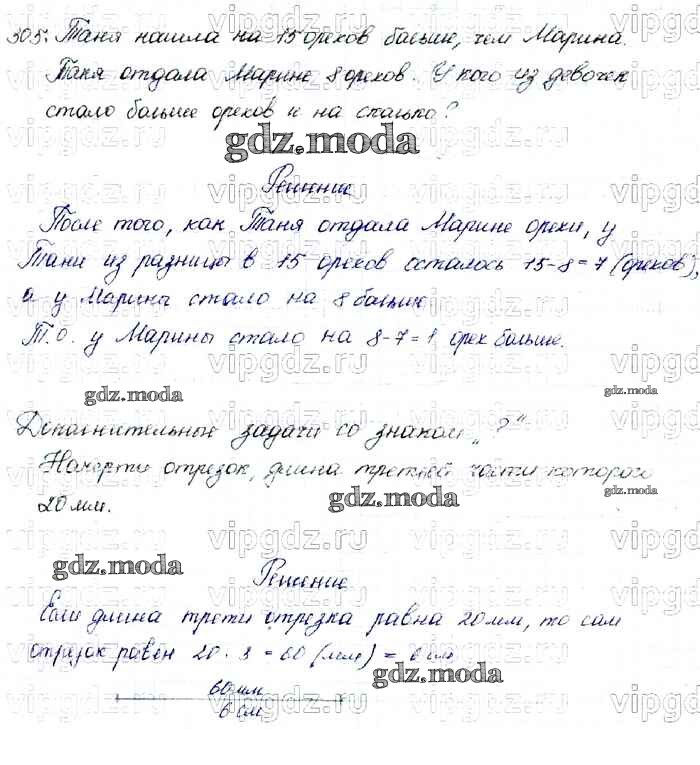 305. Таня нашла на 15 орехов больше, чем Марина.
Таня отдала Марине 8 орехов. У кого из девочек
стало больше орехов и на сколько?
gdz.moda
Решение
После того, как Таня отдала Марине орехи, у
Тани из разницы в 15 орехов осталось 15-8=7 (орехов),
а у Марины стало на 8 больше
Т.О. у Марины стало на 8-7=1 орех больше.
gdz.moda
gdz.moda
Дополнительные задачи со знаком „?“
Начерти отрезок, длина третьей части которого
20 мм.
gdz.moda
gdz.moda
Решение
Если длина трети отрезка равна 20 мм, то сам
отрезок равен 20 · 3 = 60 (мм) = 6 см
gdz.moda
60 мм
6 см
vipgdz.ru